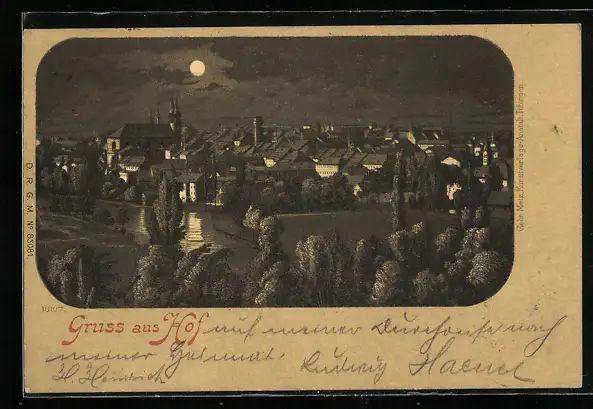 D. R. G. M. No 83081.
Gebr. Metz, Kunstverlags-Anstalt, Tübingen
10107.
Gruss aus Hof auf meiner Durchreise nach
meiner Heimat Ludwig
H. Hendrich